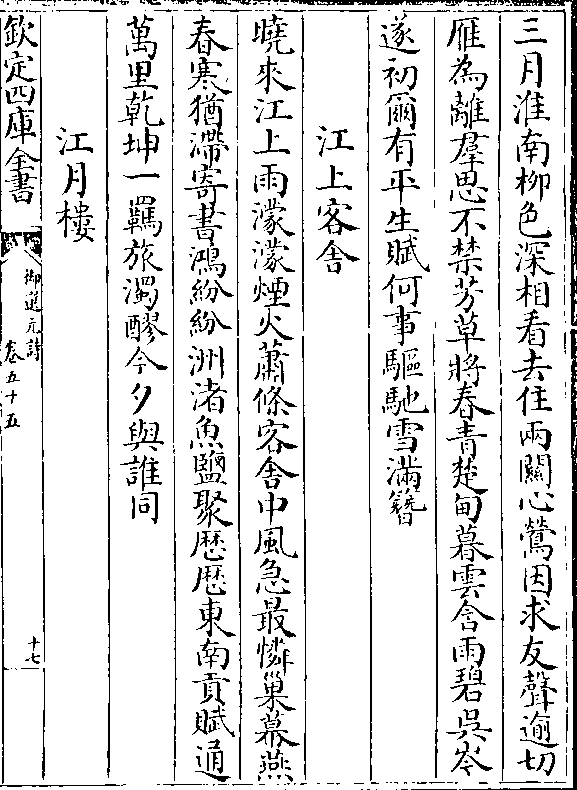 三月淮南柳色深相看去住兩關心鶯因求友聲逾切
雁為離羣思不禁芳草將春青楚甸暮雲含雨碧吳岑
遂初爾有平生賦何事驅馳雪滿簪
江上客舎
曉來江上雨濛濛煙火蕭條客舎中風急最憐巢幕燕
春寒猶滯寄書鴻紛紛洲渚魚鹽聚歴歴東南貢賦通
萬里乾坤一羈旅濁醪今夕與誰同
江月樓
欽定四庫全書
御選元詩
卷五十五
十七